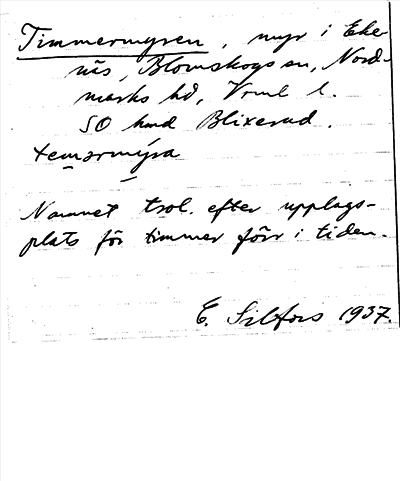 Timmermyren, myr i Eke
näs, Blomskogs sn, Nord-
marks hd, Vrml l.
SO hmd Blixerud.
temərmýra
Namnet trol. efter upplags-
plats för timmer förr i tiden.
E. Silfors 1937.